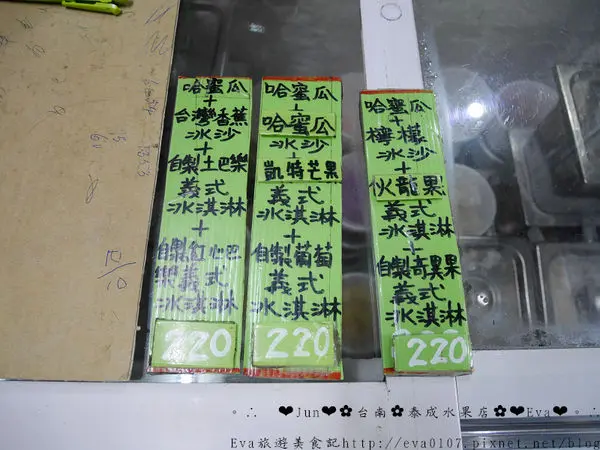 哈蜜瓜
+
台灣香蕉
冰沙
+
自製土巴樂
義式
冰淇淋
+
自製紅心巴
樂義式
冰淇淋
220
哈蜜瓜
+
哈蜜瓜
冰沙
+
凱特芒果
義式
冰淇淋
+
自製葡萄
義式
冰淇淋
220
哈蜜瓜
+
檸檬
冰沙
+
火龍果
義式
冰淇淋
+
自製奇異果
義式
冰淇淋
220
。∴ ❤Jun❤✿台南✿泰成水果店✿❤Eva❤。∴
Eva旅遊美食記http://eva0107.pixnet.net/blog